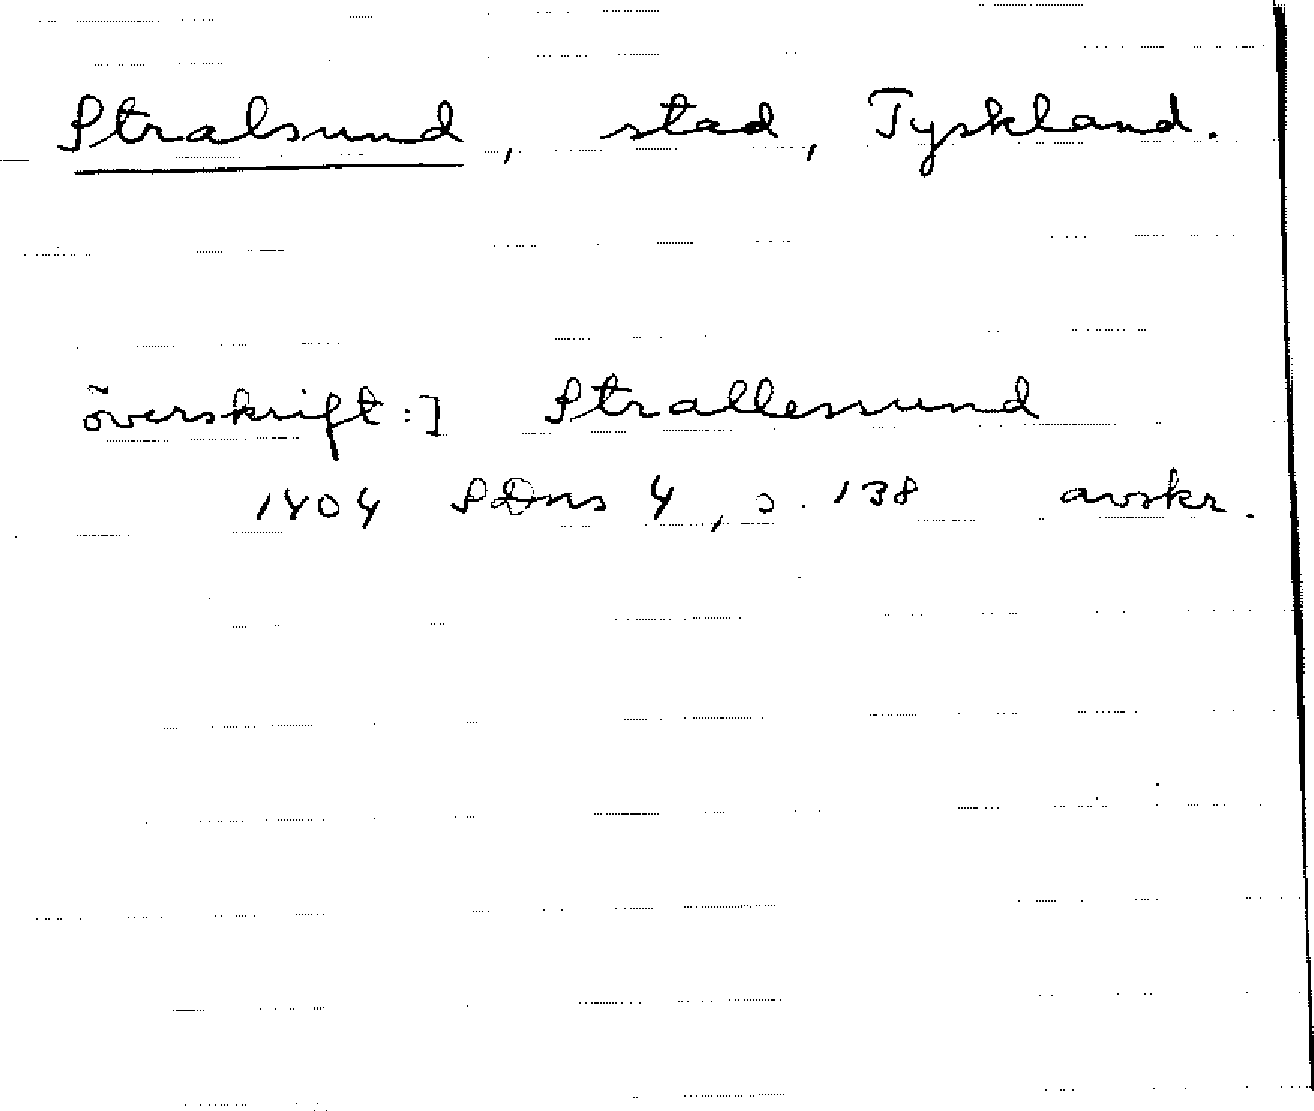 Stralsund, stad, Tyskland.
överskrift:] Strallesund
1404 SDns 4, s. 138 avskr.